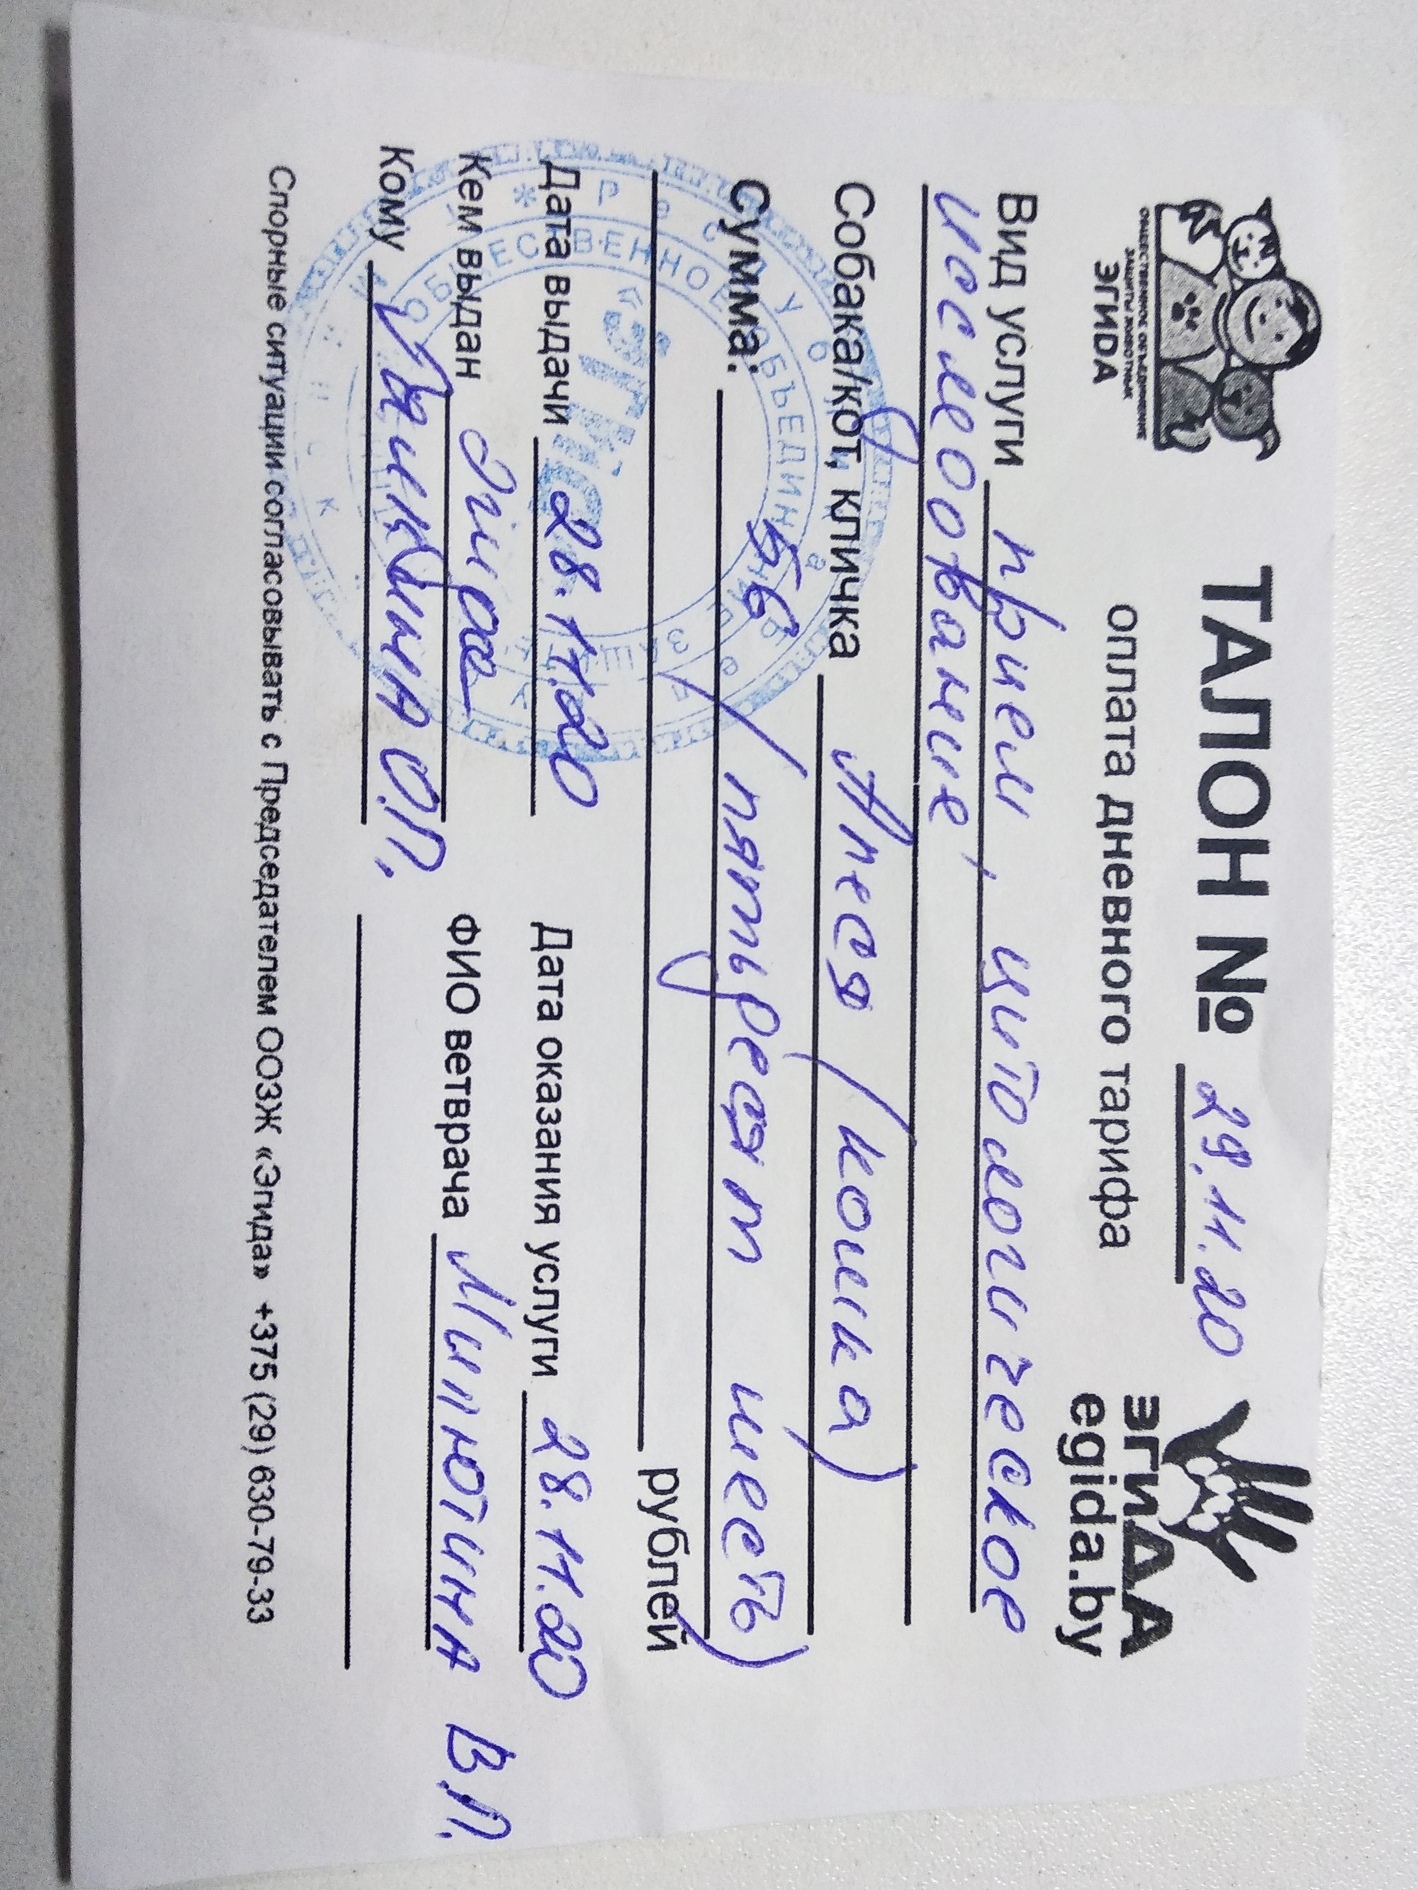 ОБЩЕСТВЕННОЕ ОБЪЕДИНЕНИЕ
ЗАЩИТЫ ЖИВОТНЫХ
ЭГИДА
ТАЛОН № 29.11.20
оплата дневного тарифа
ЭГИДА
egida.by
Вид услуги прием, цитологическое
исследование
Собака/кот, кличка Алеся (кошка)
Сумма: 56 (пятьдесят шесть)
рублей
Дата выдачи 28.11.20 Дата оказания услуги 28.11.20
Кем выдан ФИО ветврача Милютина В.П.
Кому О.П.
Спорные ситуации согласовывать с Председателем ООЗЖ «Эгида» +375 (29) 630-79-33